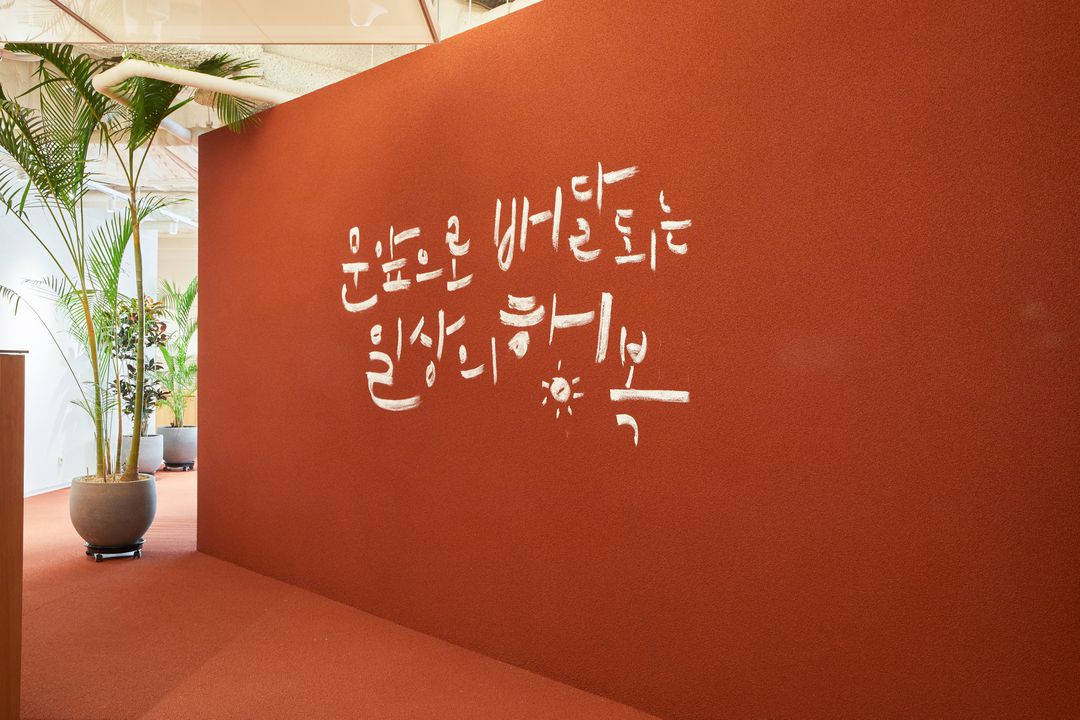 문앞으로 배달되는
일상의 행복